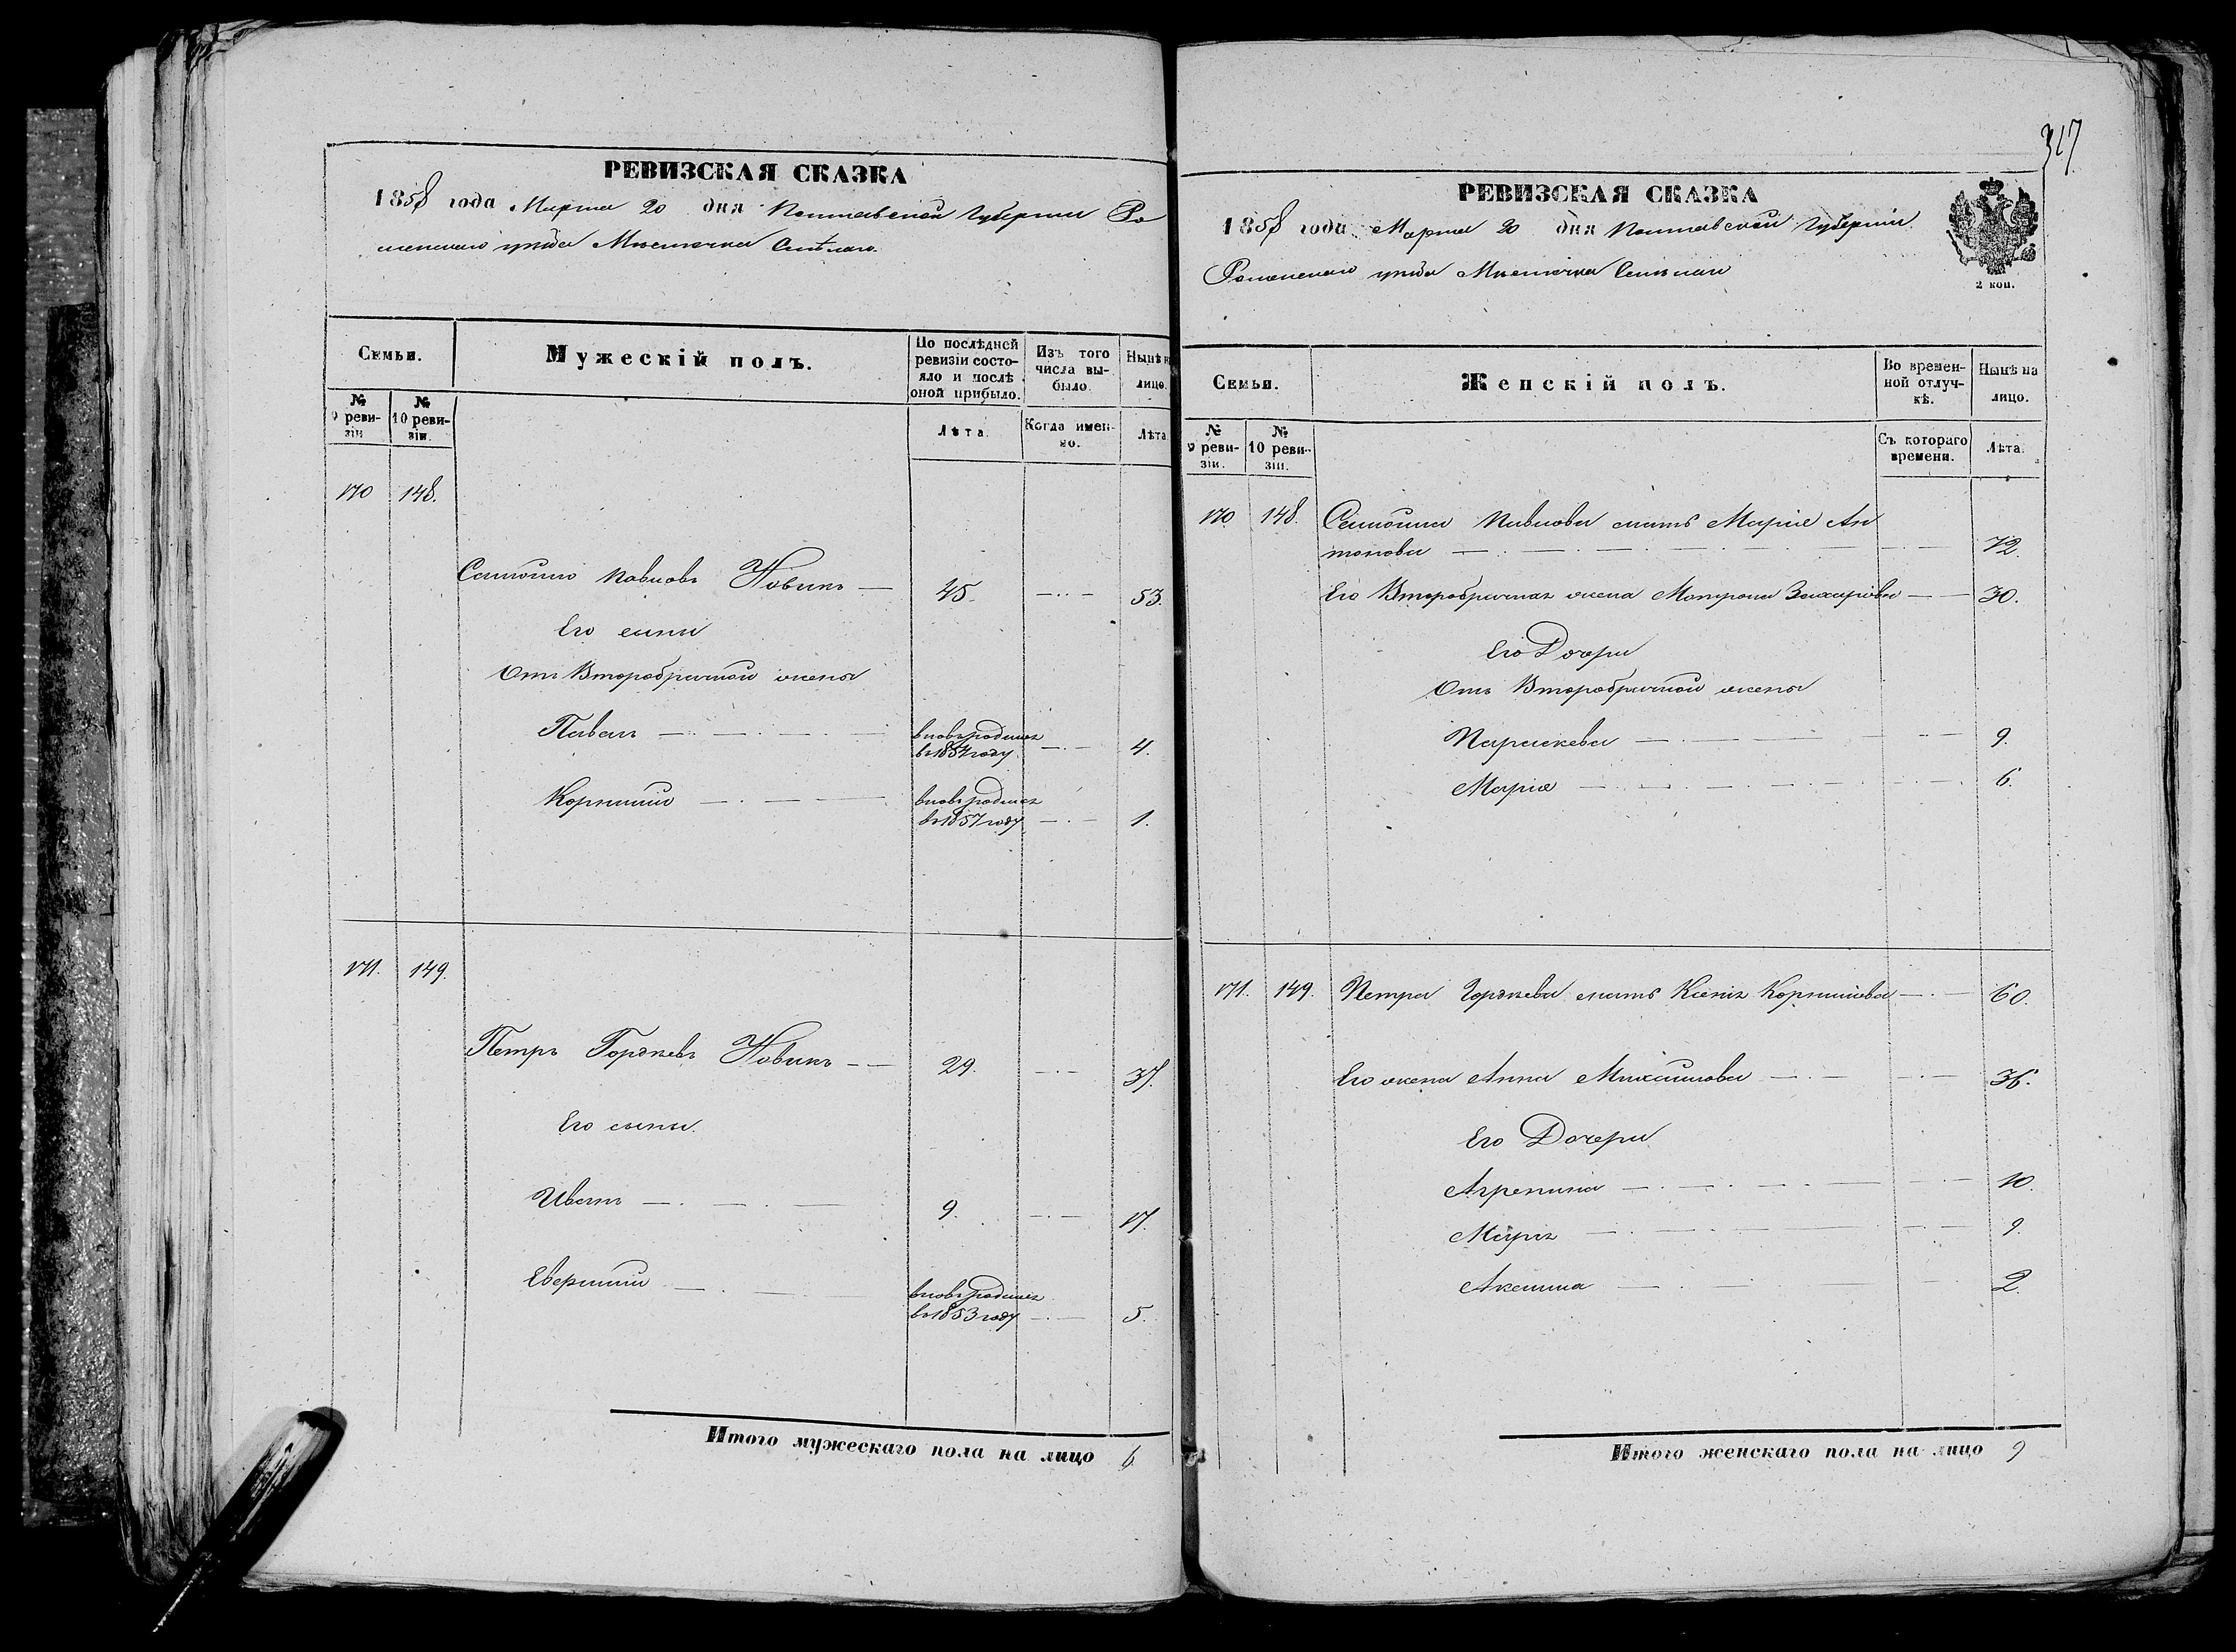 РЕВИЗСКАЯ СКАЗКА
1858 года Марта 20 дня Полтавской Губернии Ро
менского уѣзда Мѣстечка Смѣлаго.
Семьи.
Мужескій полъ.
По послѣдней ревизіи состо-яло и послѣ оной прибыло.
Изъ того числа вы-было.
Нынѣ на лицо.
№ 9 реви-зіи
№ 10 реви-зіи.
Лѣта.
Когда имен-но.
Лѣта
170 148.
Павловъ Новикъ — 45. — 53.
Его сыны
Отъ Второбрачной жены
Павелъ — вновьродился въ 1854 году — 4.
Корнилій — вновьродился въ 1857 году — 1.
171. 149.
Петръ Гордѣевъ Новикъ — 29. — 37.
Его сыны.
Иванъ — 9. — 17.
— вновьродился въ 1853 году — 5.
Итого мужескаго пола на лицо 6
317.
РЕВИЗСКАЯ СКАЗКА
1858 года Марта 20 дня Полтавской Губерніи
Роменского уѣзда Мѣстечка Смѣлаго
2 коп.
Семьи.
Женскій полъ.
Во времен-ной отлуч-кѣ.
Нынѣ на лицо.
№ 9 реви-зіи.
№ 10 реви-зіи.
Съ котораго времени.
Лѣта.
170. 148. Павлова мать Марія Ан
тонова — 72.
Его Второбрачная жена Матрона Захарова — 30.
Его Дочери
Отъ Второбрачной жены
Параскева — 9.
Марія — 6.
171. 149. Петра Гордѣева мать Ксенія Корниліева — 60.
Его жена Анна Михайлова — 36.
Его Дочери
Агрепина — 10.
Марія — 9.
Аксинія — 2.
Итого женскаго пола на лицо 9